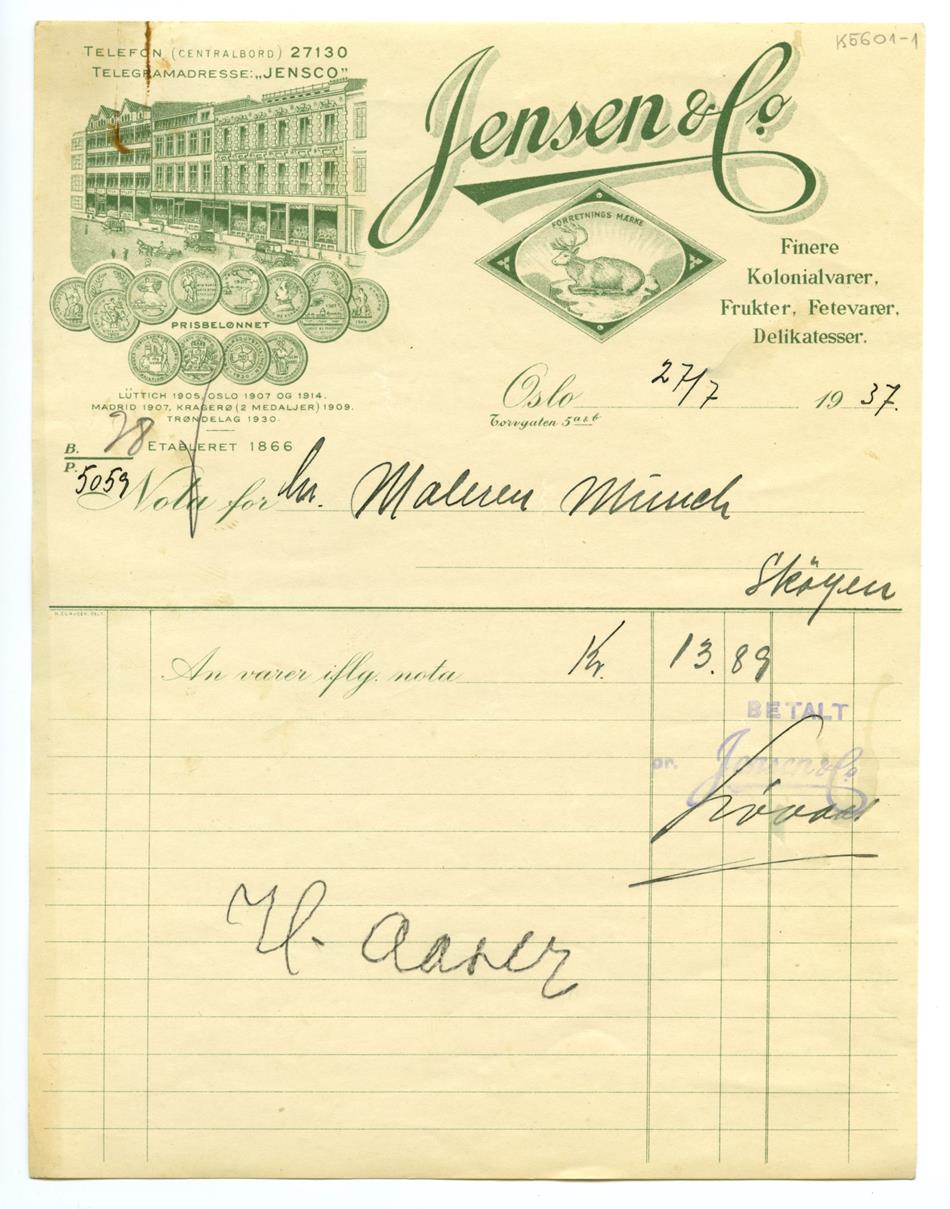 K5601-1
TELEFON (CENTRALBORD) 27130
TELEGRAMADRESSE: „JENSCO"
Jensen & Co.
FORRETNINGS MÆRKE
Finere
Kolonialvarer,
Frukter, Fetevarer,
Delikatesser.
PRISBELØNNET
LÜTTICH 1905, OSLO 1907 OG 1914.
MADRID 1907, KRAGERØ (2 MEDALJER) 1909.
TRØNDELAG 1930.
ETABLERET 1866
Oslo 27/7 1937.
Torvgaten 5 a & b
B. 28
P. 5059
Nota for hr. Maleren Munch
Sköyen
An varer iflg. nota Kr. 13.89
BETALT
pr. Jensen & Co.
H.